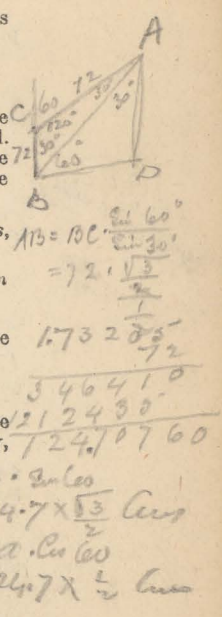 A
C 60 72 30°
120° 30°
72 30°
60°
B D
AB = BC · Sin 60° / Sin 30°
= 72 · √3/2 / 1/2
1.73205
72
346410
1212435
124.10760
· Sin 60
4.7 × √3/2
· Cos 60
24.7 × 1/2